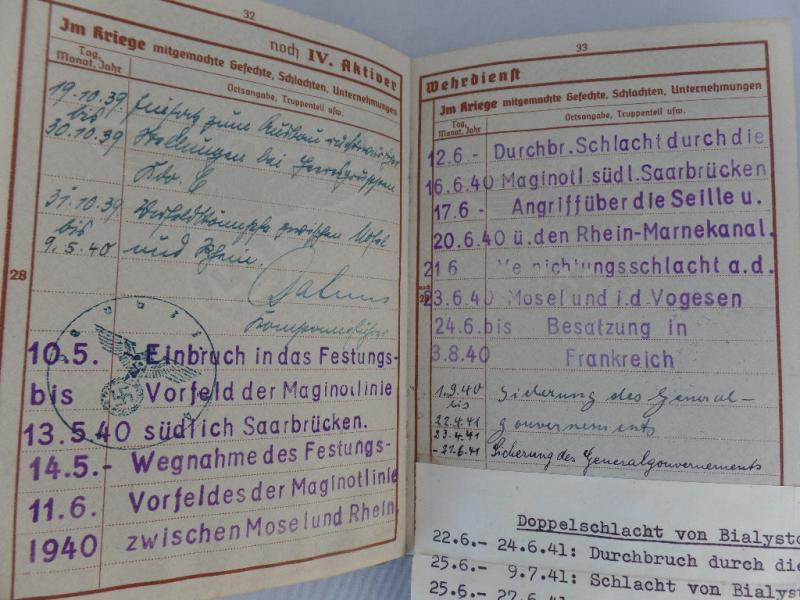 32
noch IV. Aktiver
Im Kriege mitgemachte Gefechte, Schlachten, Unternehmungen
Tag, Monat, Jahr
Ortsangabe, Truppenteil usw.
19.10.39 Einsatz zum Ausbau rückwärtiger
bis
30.10.39 Stellungen bei Heeresgruppen
Kdo. C
31.10.39 Vorfeldkämpfe zwischen Mosel
bis
9.5.40 und Rhein.
Kompanieführer
28
10.5. Einbruch in das Festungs-
bis Vorfeld der Maginotlinie
13.5.40 südlich Saarbrücken.
14.5.- Wegnahme des Festungs-
11.6. Vorfeldes der Maginotlinie
1940 zwischen Mosel und Rhein
33
Wehrdienst
Im Kriege mitgemachte Gefechte, Schlachten, Unternehmungen
Tag, Monat, Jahr
Ortsangabe, Truppenteil usw.
12.6.- Durchbr. Schlacht durch die
16.6.40 Maginotl. südl. Saarbrücken
17.6.- Angriff über die Seille u.
20.6.40 ü. den Rhein-Marnekanal.
21.6 Vernichtungsschlacht a.d.
23.6.40 Mosel und i.d. Vogesen
24.6. bis Besatzung in
3.8.40 Frankreich
1.9.40 Sicherung des General-
bis
22.4.41 gouvernements
23.4.41
- 21.6.41 Sicherung des Generalgouvernements
Doppelschlacht von Bialysto
22.6.- 24.6.41: Durchbruch durch die
25.6.- 9.7.41: Schlacht von Bialyst
25.6.- 27.6.41